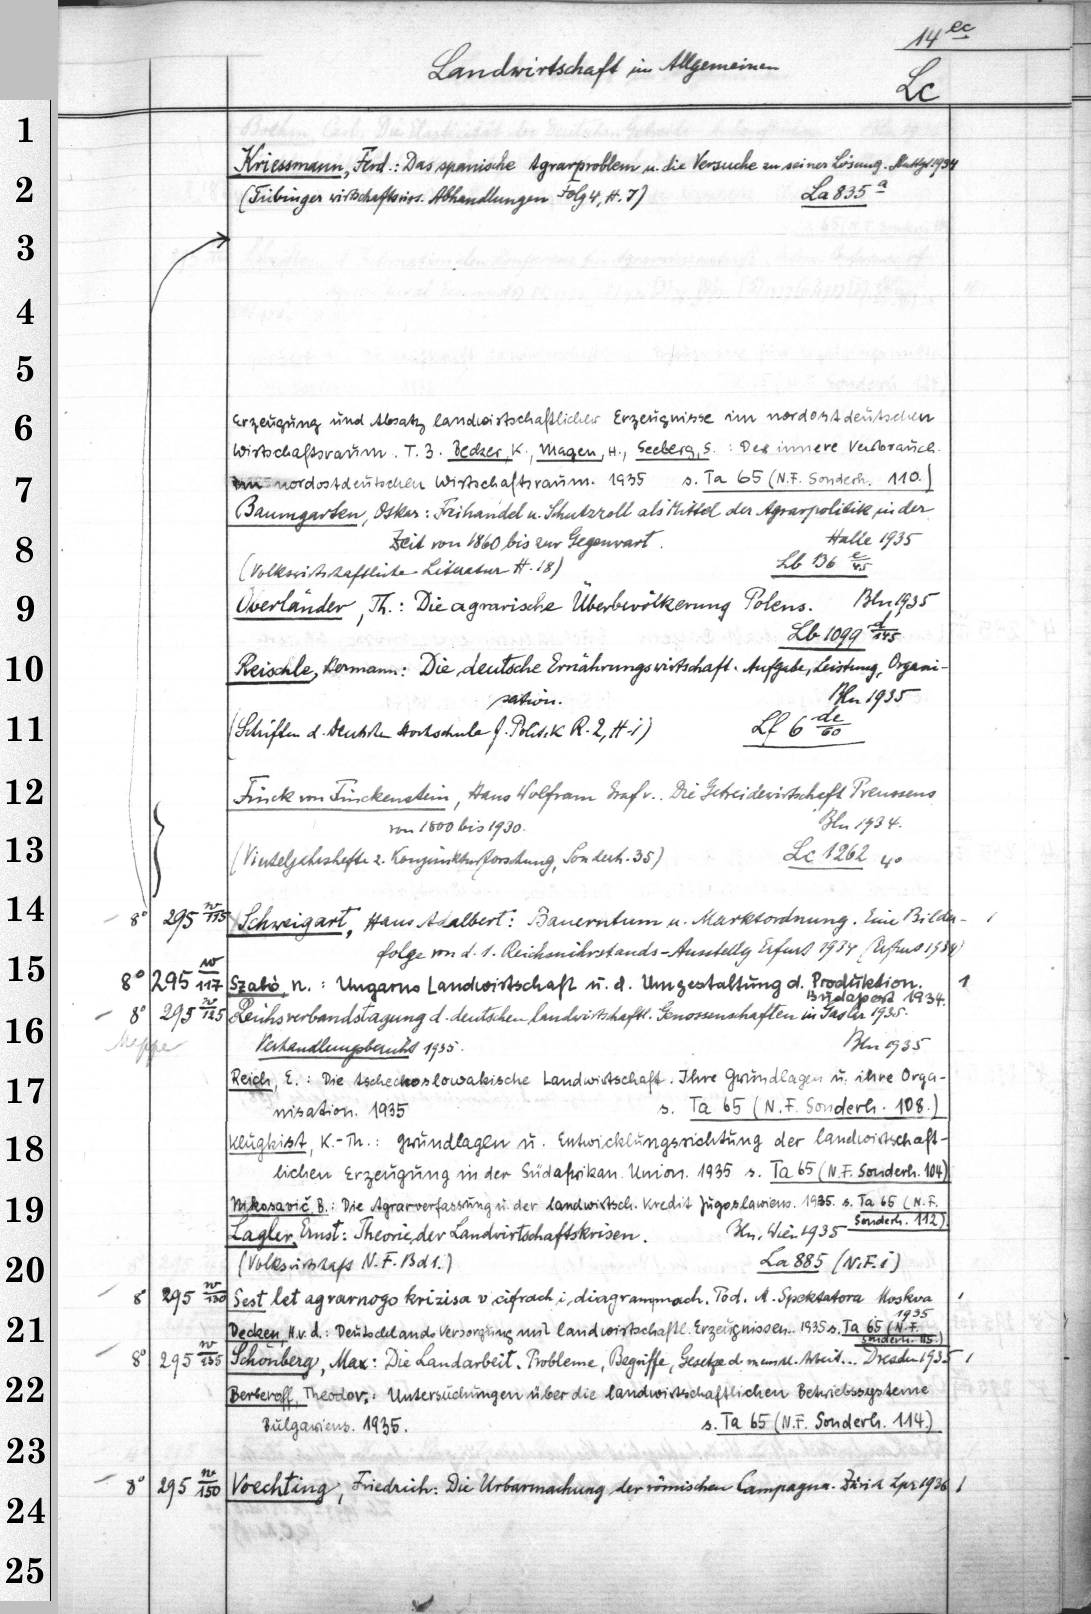 14 ec
Landwirtschaft im Allgemeinen
Lc
1
Kriessmann, Ferd.: Das spanische Agrarproblem u. die Versuche zu seiner Lösung. Stuttgt 1934
2
(Tübinger wirtschaftswiss. Abhandlungen Folg 4, H. 7) La 835 a
3
4
5
6
Erzeugung und Absatz landwirtschaftlicher Erzeugnisse im nordostdeutschen
Wirtschaftsraum. T. 3. Becker, K., Magen, H., Seeberg, S. : Der innere Verbrauch
7
im nordostdeutschen Wirtschaftsraum. 1935 s. Ta 65 (N.F. Sonderh. 110.)
Baumgarten, Oskar: Freihandel u. Schutzzoll als Mittel der Agrarpolitik in der
8
Zeit von 1860 bis zur Gegenwart. Halle 1935
(Volkswirtschaftliche Literatur H. 18) Lb 136 e/45
9
Oberländer, Th.: Die agrarische Überbevölkerung Polens. Bln 1935
Lb 1099 d/145
10
Reischle, Hermann: Die deutsche Ernährungswirtschaft. Aufgabe, Leistung, Organi-
sation. Bln 1935
11
(Schriften d. Deutschen Hochschule f. Politik R. 2, H. 1) Lf 6 de/60
12
Finck von Finckenstein, Hans Wolfram Graf v.. Die Getreidewirtschaft Preussens
von 1800 bis 1930. Bln 1934.
13
(Vierteljahrshefte z. Konjunkturforschung, Sonderh. 35) Lc 1262 4°
14
8° 295 w/115 Schweigart, Hans Adalbert: Bauerntum u. Marktordnung. Eine Bilder- 1
folge von d. 1. Reichsnährstands-Ausstellg Erfurt 1934 (Erfurt 1934)
15
8° 295 w/117 Szabó, N. : Ungarns Landwirtschaft u. d. Umgestaltung d. Produktion. 1
Budapest 1934.
8° 295 w/125 Reichsverbandstagung d. deutschen landwirtschaftl. Genossenschaften in 1935.
16
Mappe Verhandlungsbericht 1935. Bln 1935
17
Reich, E. : Die tschechoslowakische Landwirtschaft. Ihre Grundlagen u. ihre Orga-
nisation. 1935 s. Ta 65 (N.F. Sonderh. 108.)
18
Klugkist, K.-Th. : Grundlagen u. Entwicklungsrichtung der landwirtschaft-
lichen Erzeugung in der Südafrikan. Union. 1935 s. Ta 65 (N.F. Sonderh. 104)
19
Mikosavič, B. : Die Agrarverfassung u. der landwirtsch. Kredit Jugoslawiens. 1935. s. Ta 65 (N.F.
Sonderh. 112)
Lagler, Ernst: Theorie der Landwirtschaftskrisen. Bln, Wien 1935
20
(Volkswirtschaft N.F. Bd 1.) La 885 (N.F. 1)
8° 295 w/130 Šest let agrarnogo krizisa v cifrach i diagrammach. Pod. M. Spektatora Moskva 1
1935
21
Decken, H. v. d. : Deutschlands Versorgung mit landwirtschaftl. Erzeugnissen. 1935 s. Ta 65 (N.F.
Sonderh. 115.)
8° 295 w/135 Schönberg, Max: Die Landarbeit. Probleme, Begriffe, Gesetze d. menschl. Arbeit... Dresden 1935 1
22
Berberoff, Theodor. : Untersuchungen über die landwirtschaftlichen Betriebssysteme
Bulgariens. 1935. s. Ta 65 (N.F. Sonderh. 114.)
23
8° 295 w/150 Voechting, Friedrich: Die Urbarmachung der römischen Campagna. Zürich Lpz 1936 1
24
25